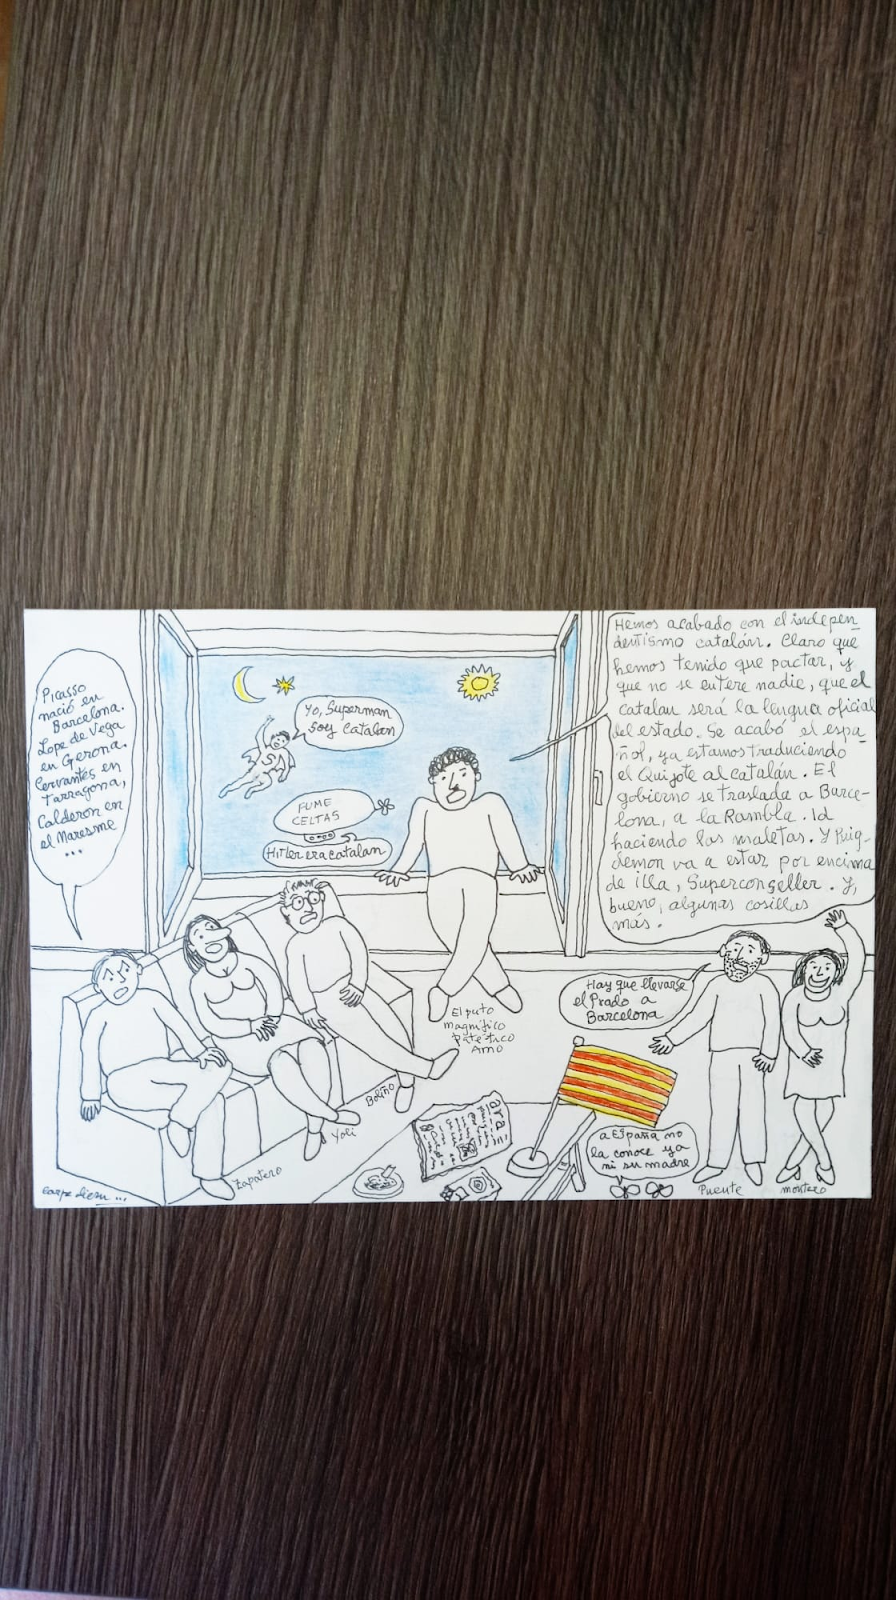 Picasso
nació en
Barcelona.
Lope de Vega
en Gerona.
Cervantes en
Tarragona,
Calderón en
el Maresme
...
Yo, Superman
soy catalan
FUME
CELTAS
Hitler era catalan
Hemos acabado con el indepen-
dentismo catalán. Claro que
hemos tenido que pactar, y
que no se entere nadie, que el
catalan será la lengua oficial
del estado. Se acabó el espa-
ñol, ya estamos traduciendo
el Quijote al catalán. El
gobierno se traslada a Barce-
lona, a la Rambla. Id
haciendo las maletas. Y Puig-
demon va a estar por encima
de illa, Superconseller. Y,
bueno, algunas cosillas
más.
Hay que llevarse
el Prado a
Barcelona
El puto
magnífico
patético
Amo
a España no
la conoce ya
ni su madre
ara
Bolino
Yoli
Zapatero
Puente
montero
Carpe diem...